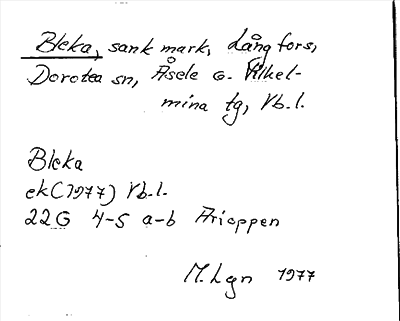 Bleka, sank mark, Långfors,
Dorotea sn, Åsele o. Vilhel-
mina tg, Vb.l.
Bleka
ek(1977) Vb.l.
22G 4-5 a-b Arioppen
M.Lgn 1977